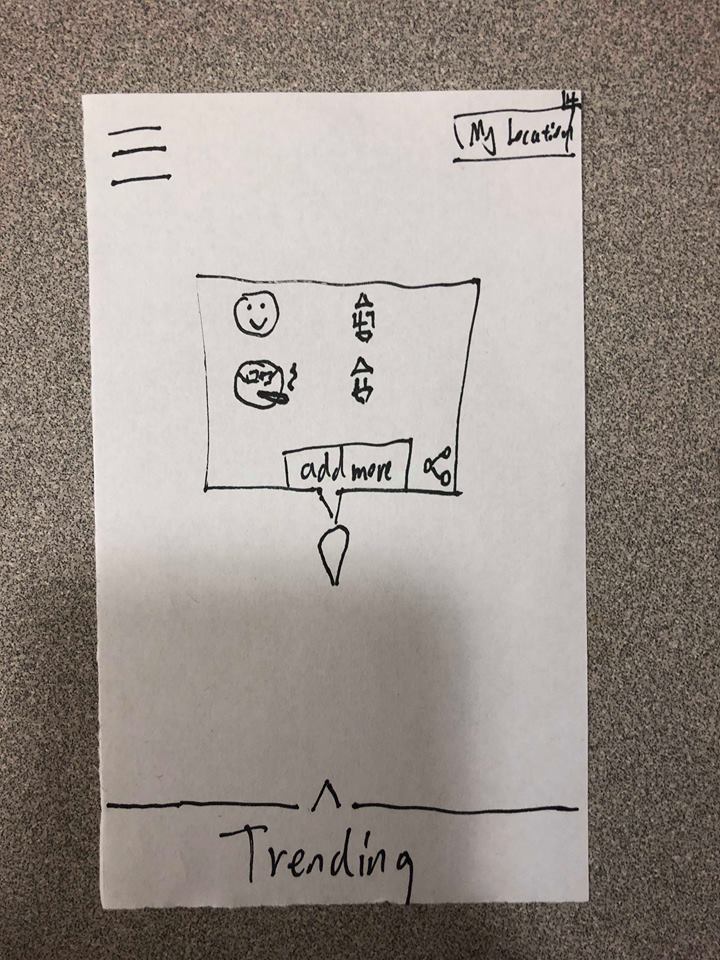 14
My Location
47
add more
Trending